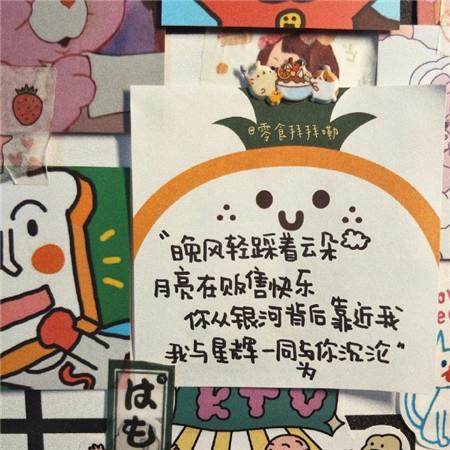 @零食拜拜嘞
“晚风轻踩着云朵
月亮在贩售快乐
你从银河背后靠近我
我与星辉一同与你沉沦”
为
ぱも
KTV